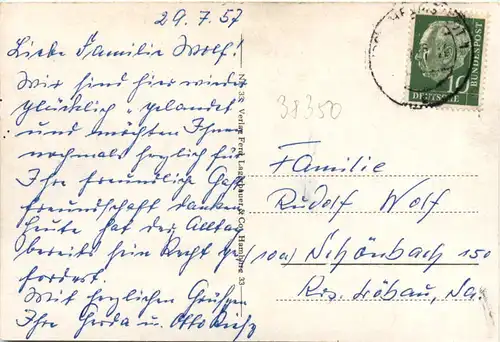 29.7.57
Liebe Familie Wolf!
Wir sind hier wieder
glücklich "gelandet"
und möchten Ihnen
nochmals herzlich für
Ihre freundliche Gast
freundschaft danken
Heute hat der Alltag
bereits sein Recht ge
fordert
Mit herzlichen Grüßen
Ihre Gerda u. Otto
38350
Familie
Rudolf Wolf
(10a) Schönbach 150
Krs. Löbau, Sa.
Verlag Ferd. Lagerbauer & Co., Hamburg 33
10
DEUTSCHE
BUNDESPOST